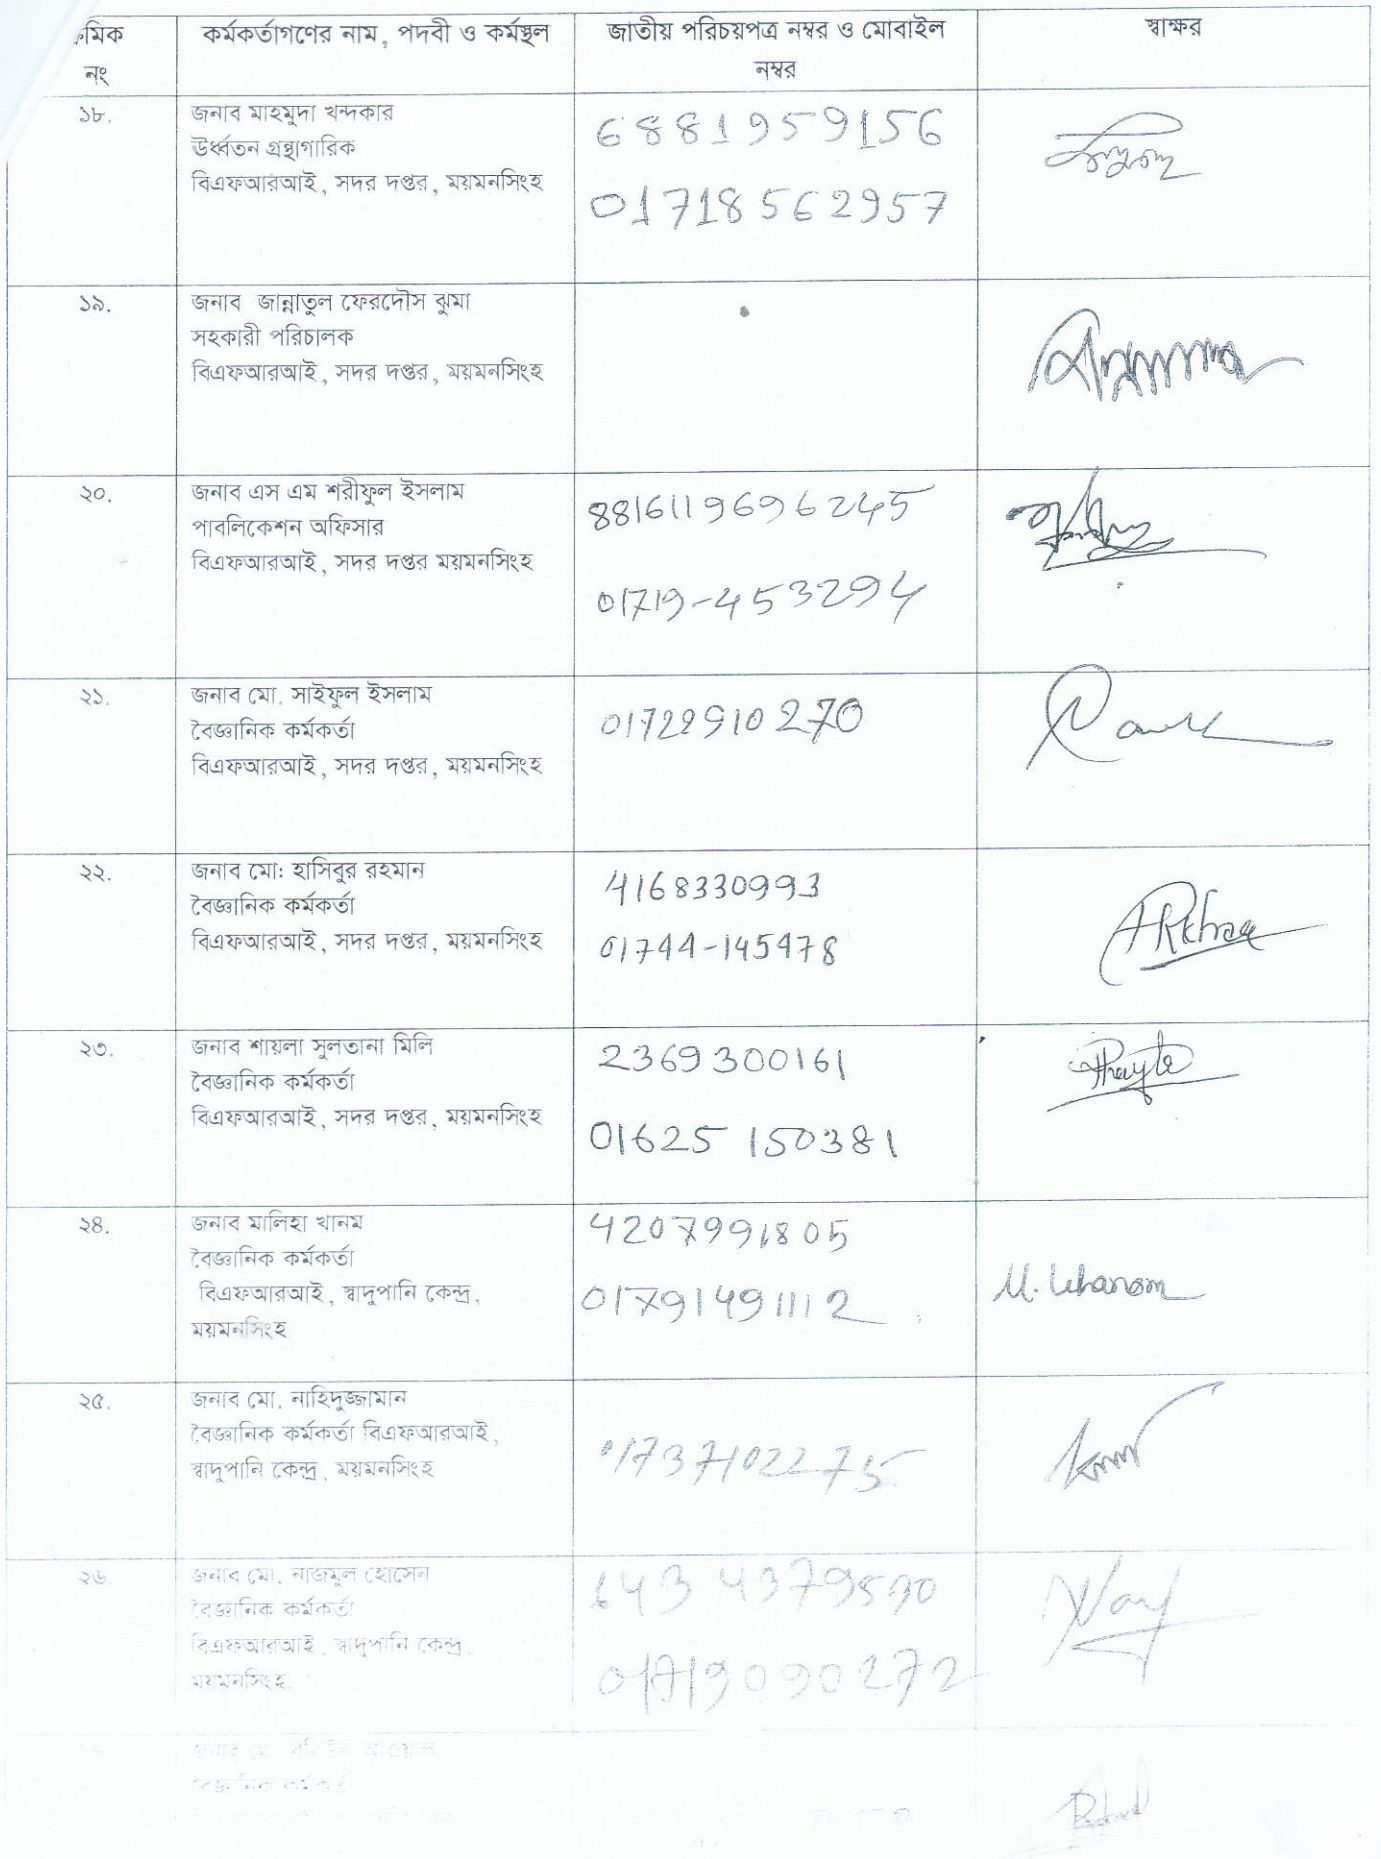 ক্রমিক নং
কর্মকর্তাগণের নাম, পদবী ও কর্মস্থল
জাতীয় পরিচয়পত্র নম্বর ও মোবাইল নম্বর
স্বাক্ষর
১৮.
জনাব মাহমুদা খন্দকার
ঊর্ধ্বতন গ্রন্থাগারিক
বিএফআরআই, সদর দপ্তর, ময়মনসিংহ
6881959156
01718562957
১৯.
জনাব জান্নাতুল ফেরদৌস ঝুমা
সহকারী পরিচালক
বিএফআরআই, সদর দপ্তর, ময়মনসিংহ
২০.
জনাব এস এম শরীফুল ইসলাম
পাবলিকেশন অফিসার
বিএফআরআই, সদর দপ্তর ময়মনসিংহ
8816119696245
01719-453294
২১.
জনাব মো. সাইফুল ইসলাম
বৈজ্ঞানিক কর্মকর্তা
বিএফআরআই, সদর দপ্তর, ময়মনসিংহ
01722910270
২২.
জনাব মো: হাসিবুর রহমান
বৈজ্ঞানিক কর্মকর্তা
বিএফআরআই, সদর দপ্তর, ময়মনসিংহ
4168330993
01744-145478
২৩.
জনাব শায়লা সুলতানা মিলি
বৈজ্ঞানিক কর্মকর্তা
বিএফআরআই, সদর দপ্তর, ময়মনসিংহ
2369300161
01625 150381
২৪.
জনাব মালিহা খানম
বৈজ্ঞানিক কর্মকর্তা
বিএফআরআই, স্বাদুপানি কেন্দ্র,
ময়মনসিংহ
4207991805
01791491112
M. Khanom
২৫.
জনাব মো. নাহিদুজ্জামান
বৈজ্ঞানিক কর্মকর্তা বিএফআরআই,
স্বাদুপানি কেন্দ্র, ময়মনসিংহ
01737102275
২৬.
জনাব মো. নাজমুল হোসেন
বৈজ্ঞানিক কর্মকর্তা
বিএফআরআই, স্বাদুপানি কেন্দ্র,
ময়মনসিংহ
01719090272
জনাব মো
বৈজ্ঞানিক কর্মকর্তা